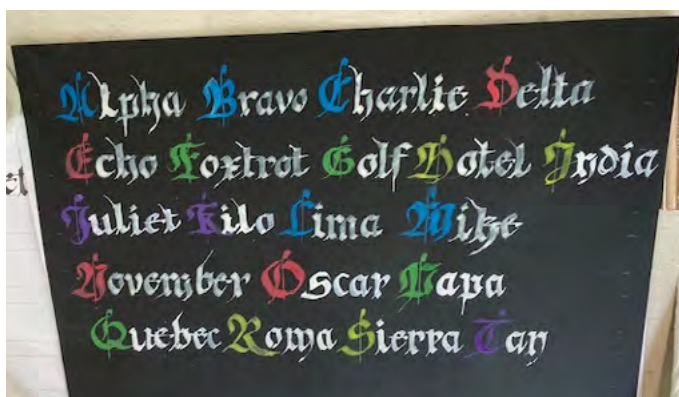 Alpha Bravo Charlie Delta
Echo Foxtrot Golf Hotel India
Juliet Kilo Lima Mike
November Oscar Papa
Quebec Roma Sierra Tan